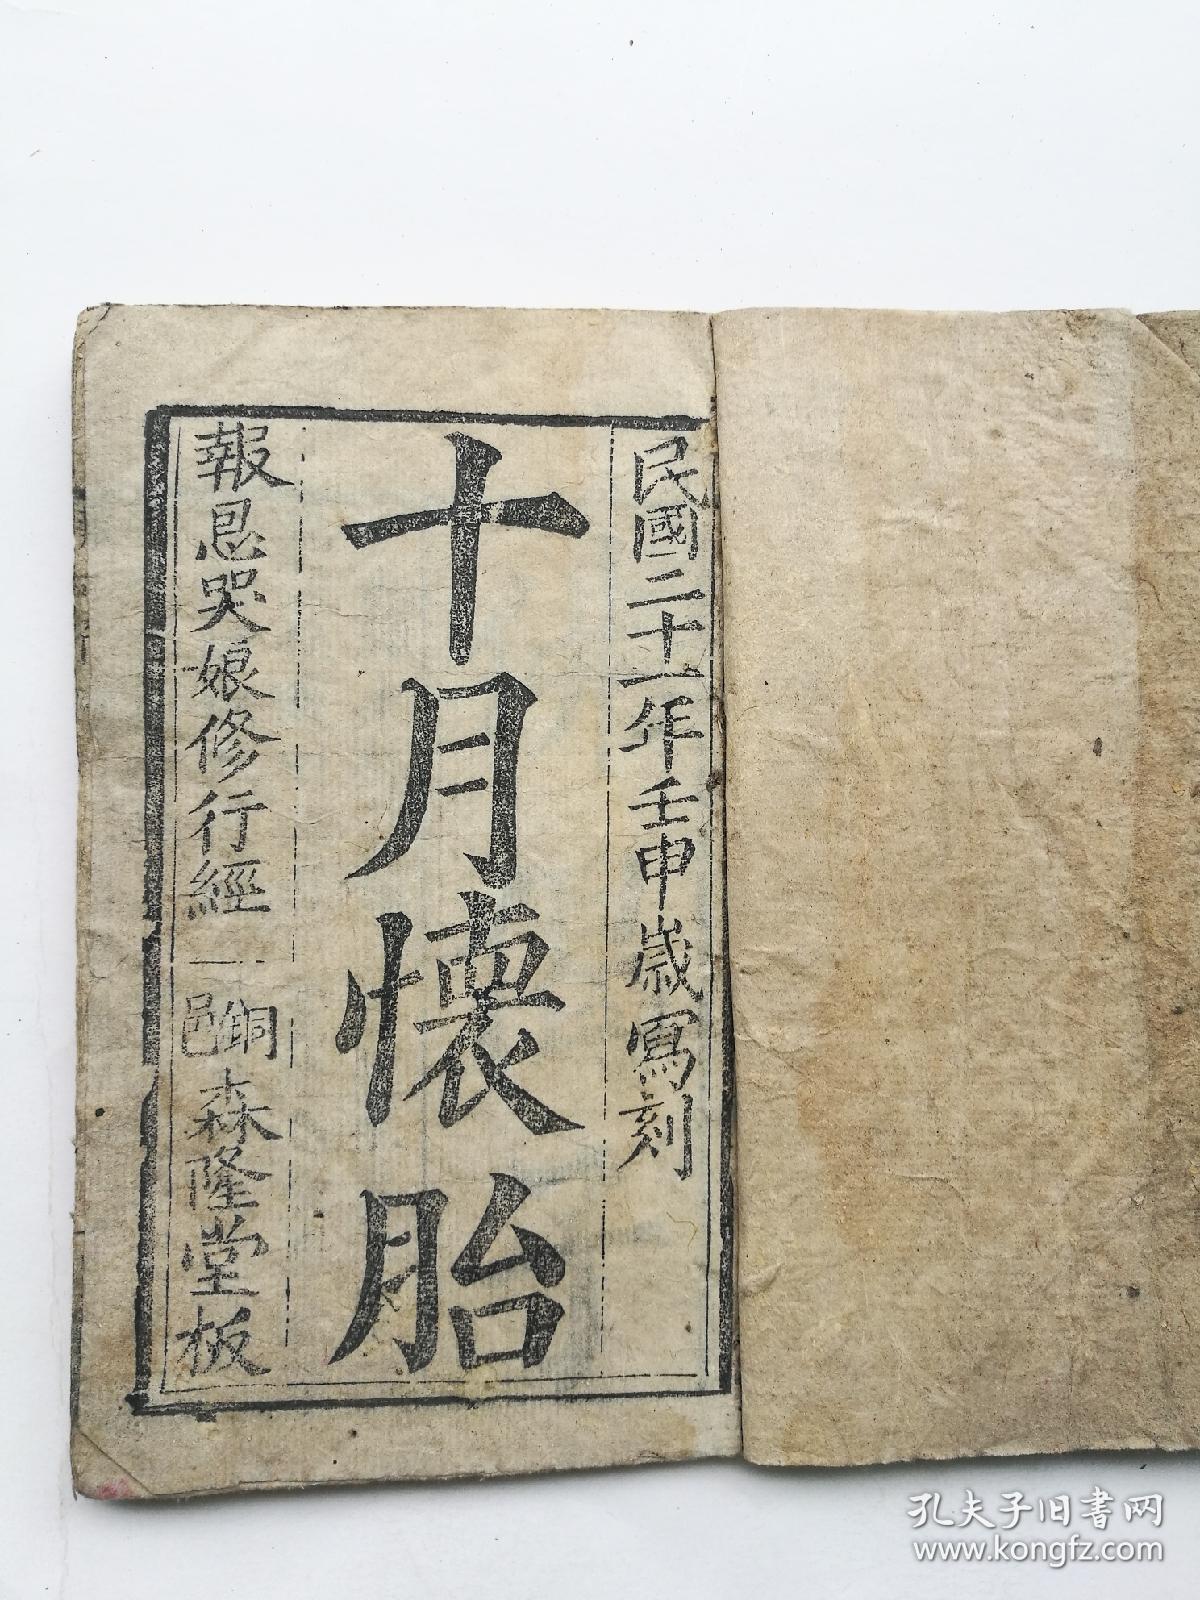 民國二十一年壬申歲寫刻
十月懷胎
報恩哭娘修行經
銅邑森隆堂板
孔夫子旧书网
www.kongfz.com